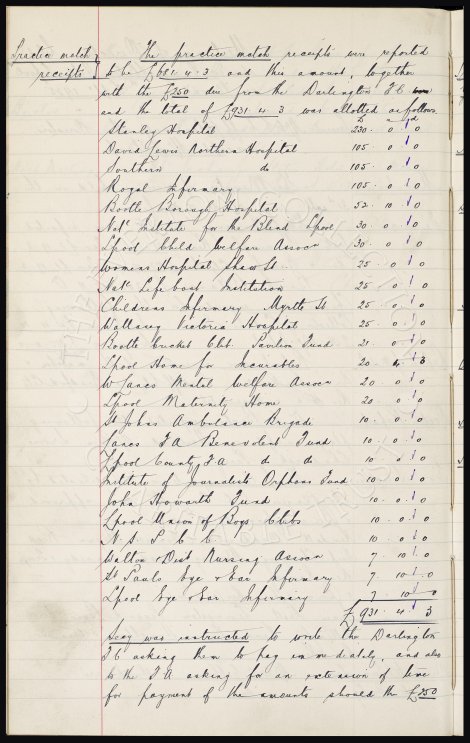 Practice match receipts
The practice match receipts were reported
to be £681.4.3 and this amount, together
with the £250 due from the Darlington F C
and the total of £931.4.3 was allotted as follows.
£ s d
Stanley Hospital 230. 0 0
David Lewis Northern Hospital 105. 0 0
Southern do 105. 0 0
Royal Infirmary 105. 0 0
Bootle Borough Hospital 52. 10 0
Natl Institute for the Blind Lpool 30. 0 0
Lpool Child Welfare Assocn 30. 0 0
Womens Hospital Shaw St. 25. 0 0
Natl Life boat Institution 25. 0 0
Childrens Infirmary Myrtle St 25. 0 0
Wallasey Victoria Hospital 25. 0 0
Bootle Cricket Clb. Pavilion Fund 21. 0 0
Lpool Home for Incurables 20. 4 3
W Lancs Mental Welfare Assocn 20. 0 0
Lpool Maternity Home 20 0 0
St Johns Ambulance Brigade 10. 0 0
Lancs F A Benevolent Fund 10. 0 0
Lpool County F A do do 10. 0 0
Institute of Journalists Orphans Fund 10. 0 0
John Howarth Fund 10. 0 0
Lpool Union of Boys Clbs 10. 0 0
N. S. P. C. C. 10. 0 0
Walton & Dist Nursing Assocn 7. 10. 0
St Pauls Eye & Ear Infirmary 7 10. 0
Lpool Eye & Ear Infirmary 7 10 0
£931. 4. 3
Secy was instructed to write the Darlington
F C asking them to pay immediately, and also
to the F A asking for an extension of time
for payment of the amounts should the £250